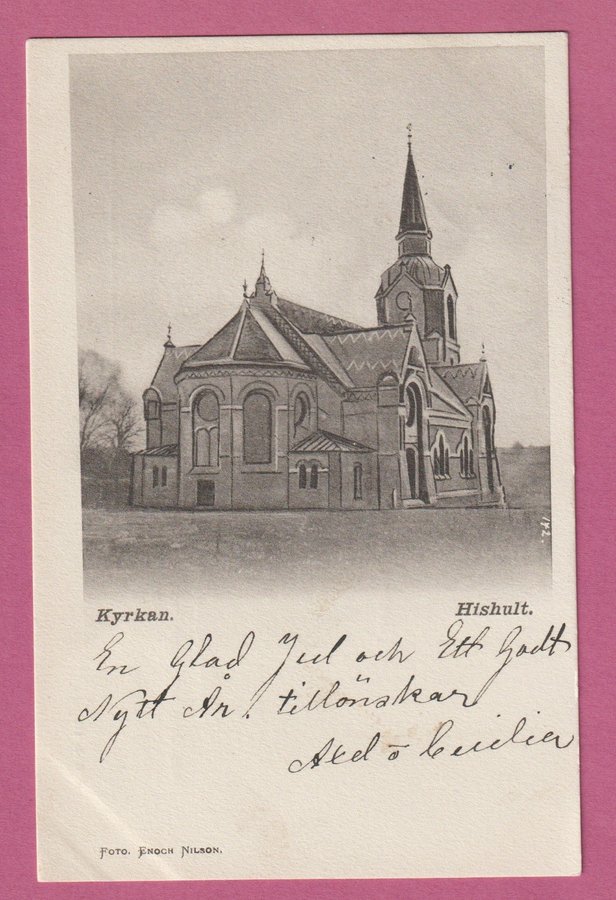 142.
Kyrkan. Hishult.
En Glad Jul och Ett Godt
Nytt År. tillönskar
Axel o Cecilia
Foto. Enoch Nilson.